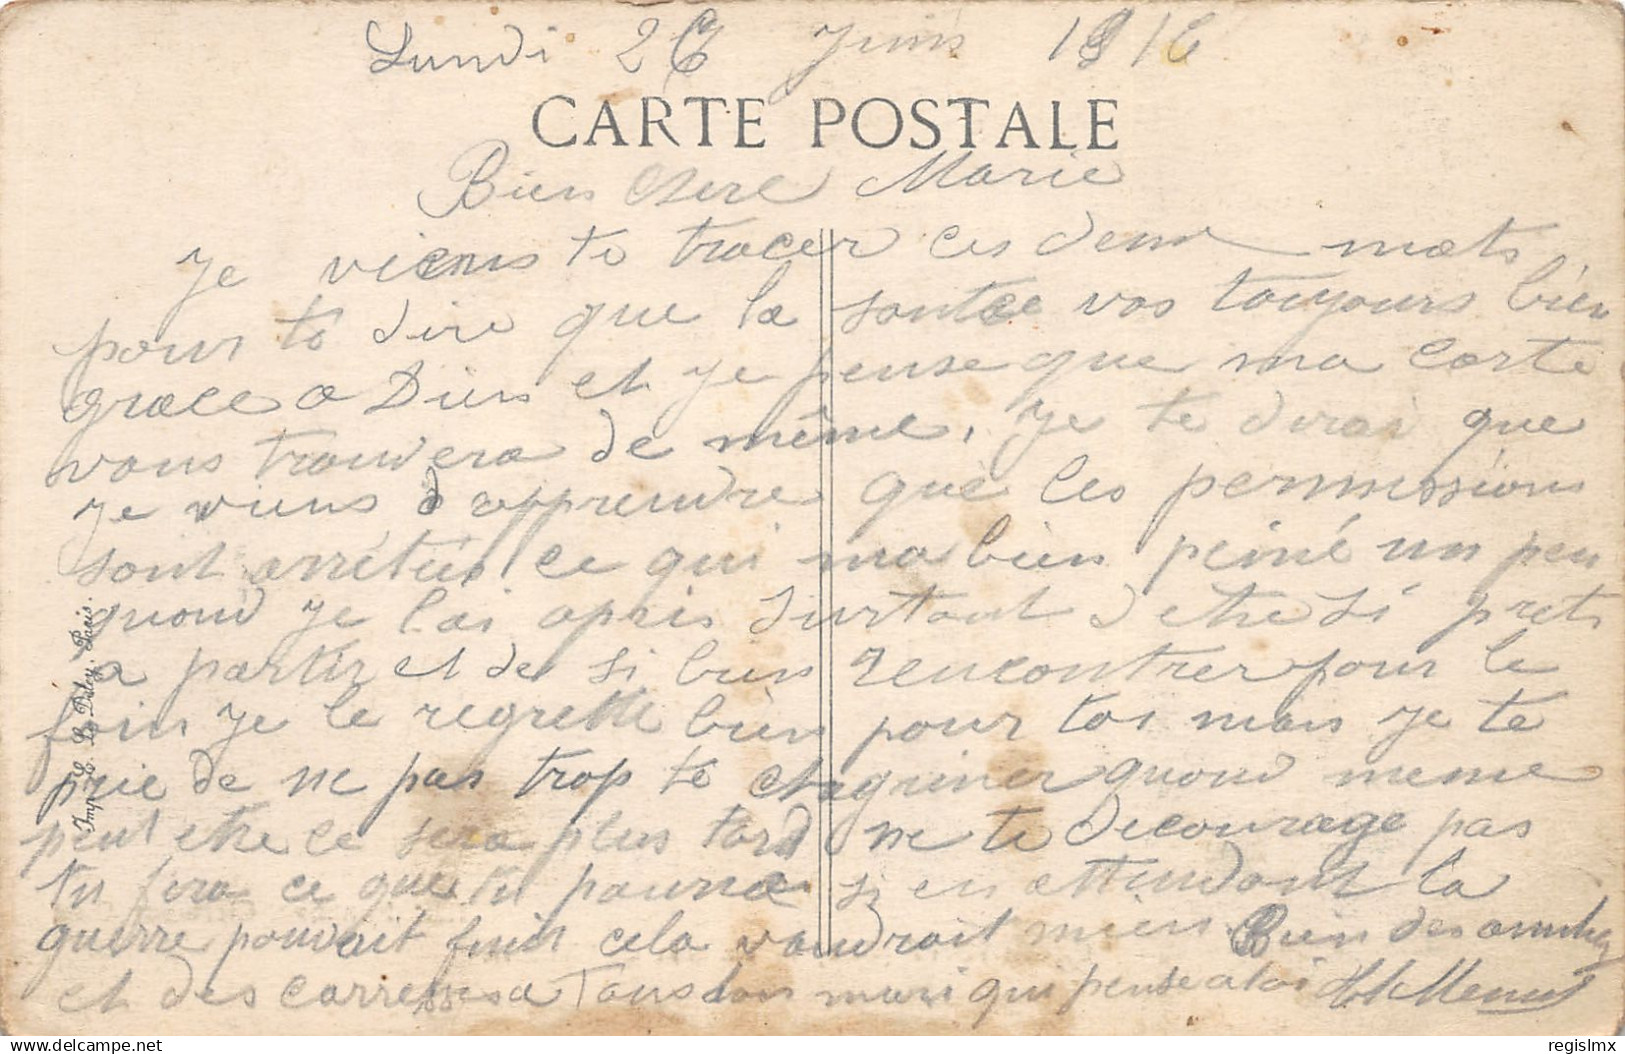 Lundi 26 Juin 1916
CARTE POSTALE
Bien chere Marie
Je viens te tracer ces deux mots
pour te dire que la santee vas toujours bien
grace a Dieu et je pense que ma carte
vous trouvera de même, je te dirai que
je viens d apprendre que les permissions
sont arrétées ce qui ma bien peiné un peu
quand je lai apris surtout detre si prets
a partir et de si bien rencontrer pour le
foin je le regrette bien pour toi mais je te
prie de ne pas trop te chagriner quand meme
peut etre ce sera plus tard ne te decourage pas
tu fera ce que tu pourra si en attendant la
guerre pouvait finir cela vaudrait mieux Bien des amitiez
et des carresses a Tous ton mari qui pense a toi
Imp. E. L. Deley. Paris.
regislmx
delcampe.net